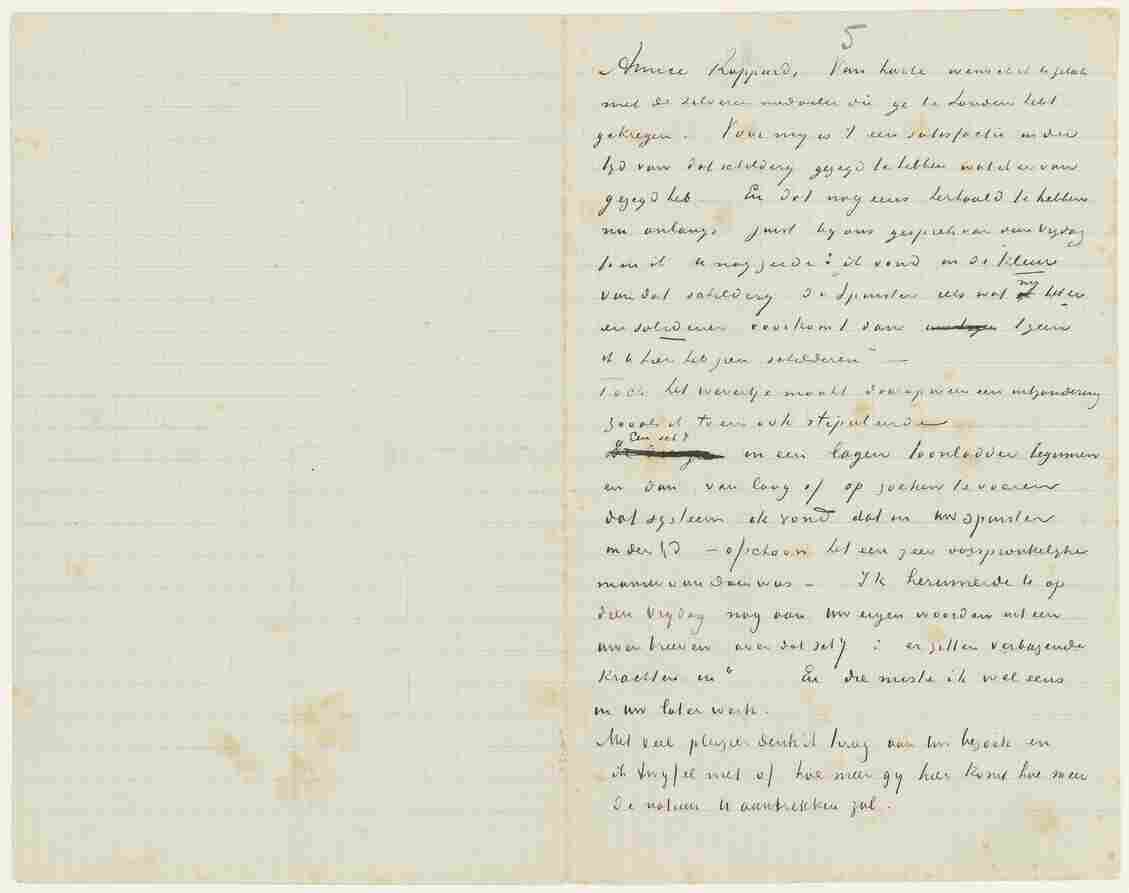 5
Amice Rappard, Van harte wensch ik U geluk
met de zilveren medaille die ge te Londen hebt
gekregen. Voor my is 't een satisfactie in der
tyd van dat schildery gezegd te hebben wat ik er van
gezegd heb En dat nog eens herhaald te hebben
nu onlangs juist by ons gesprek van dien Vrydag
toen ik U nog zeide: ik vond in de kleur
van dat schildery de Spinster iets wat my beter
en solieder voorkomt dan tgeen
ik U hier heb zien schilderen" —
Toch het wevertje maakt daarop weer een uitzondering
zooals ik toen ook stipuleerde
Een sch^y
in een lagen toonladder beginnen
en dan van laag af op zoeken te voeren
dat systeem ik vond dat in uw spinster
in der tyd — ofschoon het een zeer oorspronkelyke
manier van doen was — Ik herinnerde U op
dien Vrydag nog aan uw eigen woorden uit een
uwer brieven over dat sch^y : er zitten verbazende
krachten in" En die miste ik wel eens
in uw later werk.
Met veel pleizier denk ik terug aan Uw bezoek en
ik twyfel niet of hoe meer gy hier komt hoe meer
de natuur U aantrekken zal.